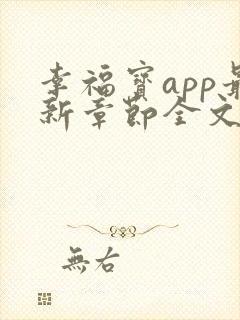 幸福寶app最
新章節全文
無右